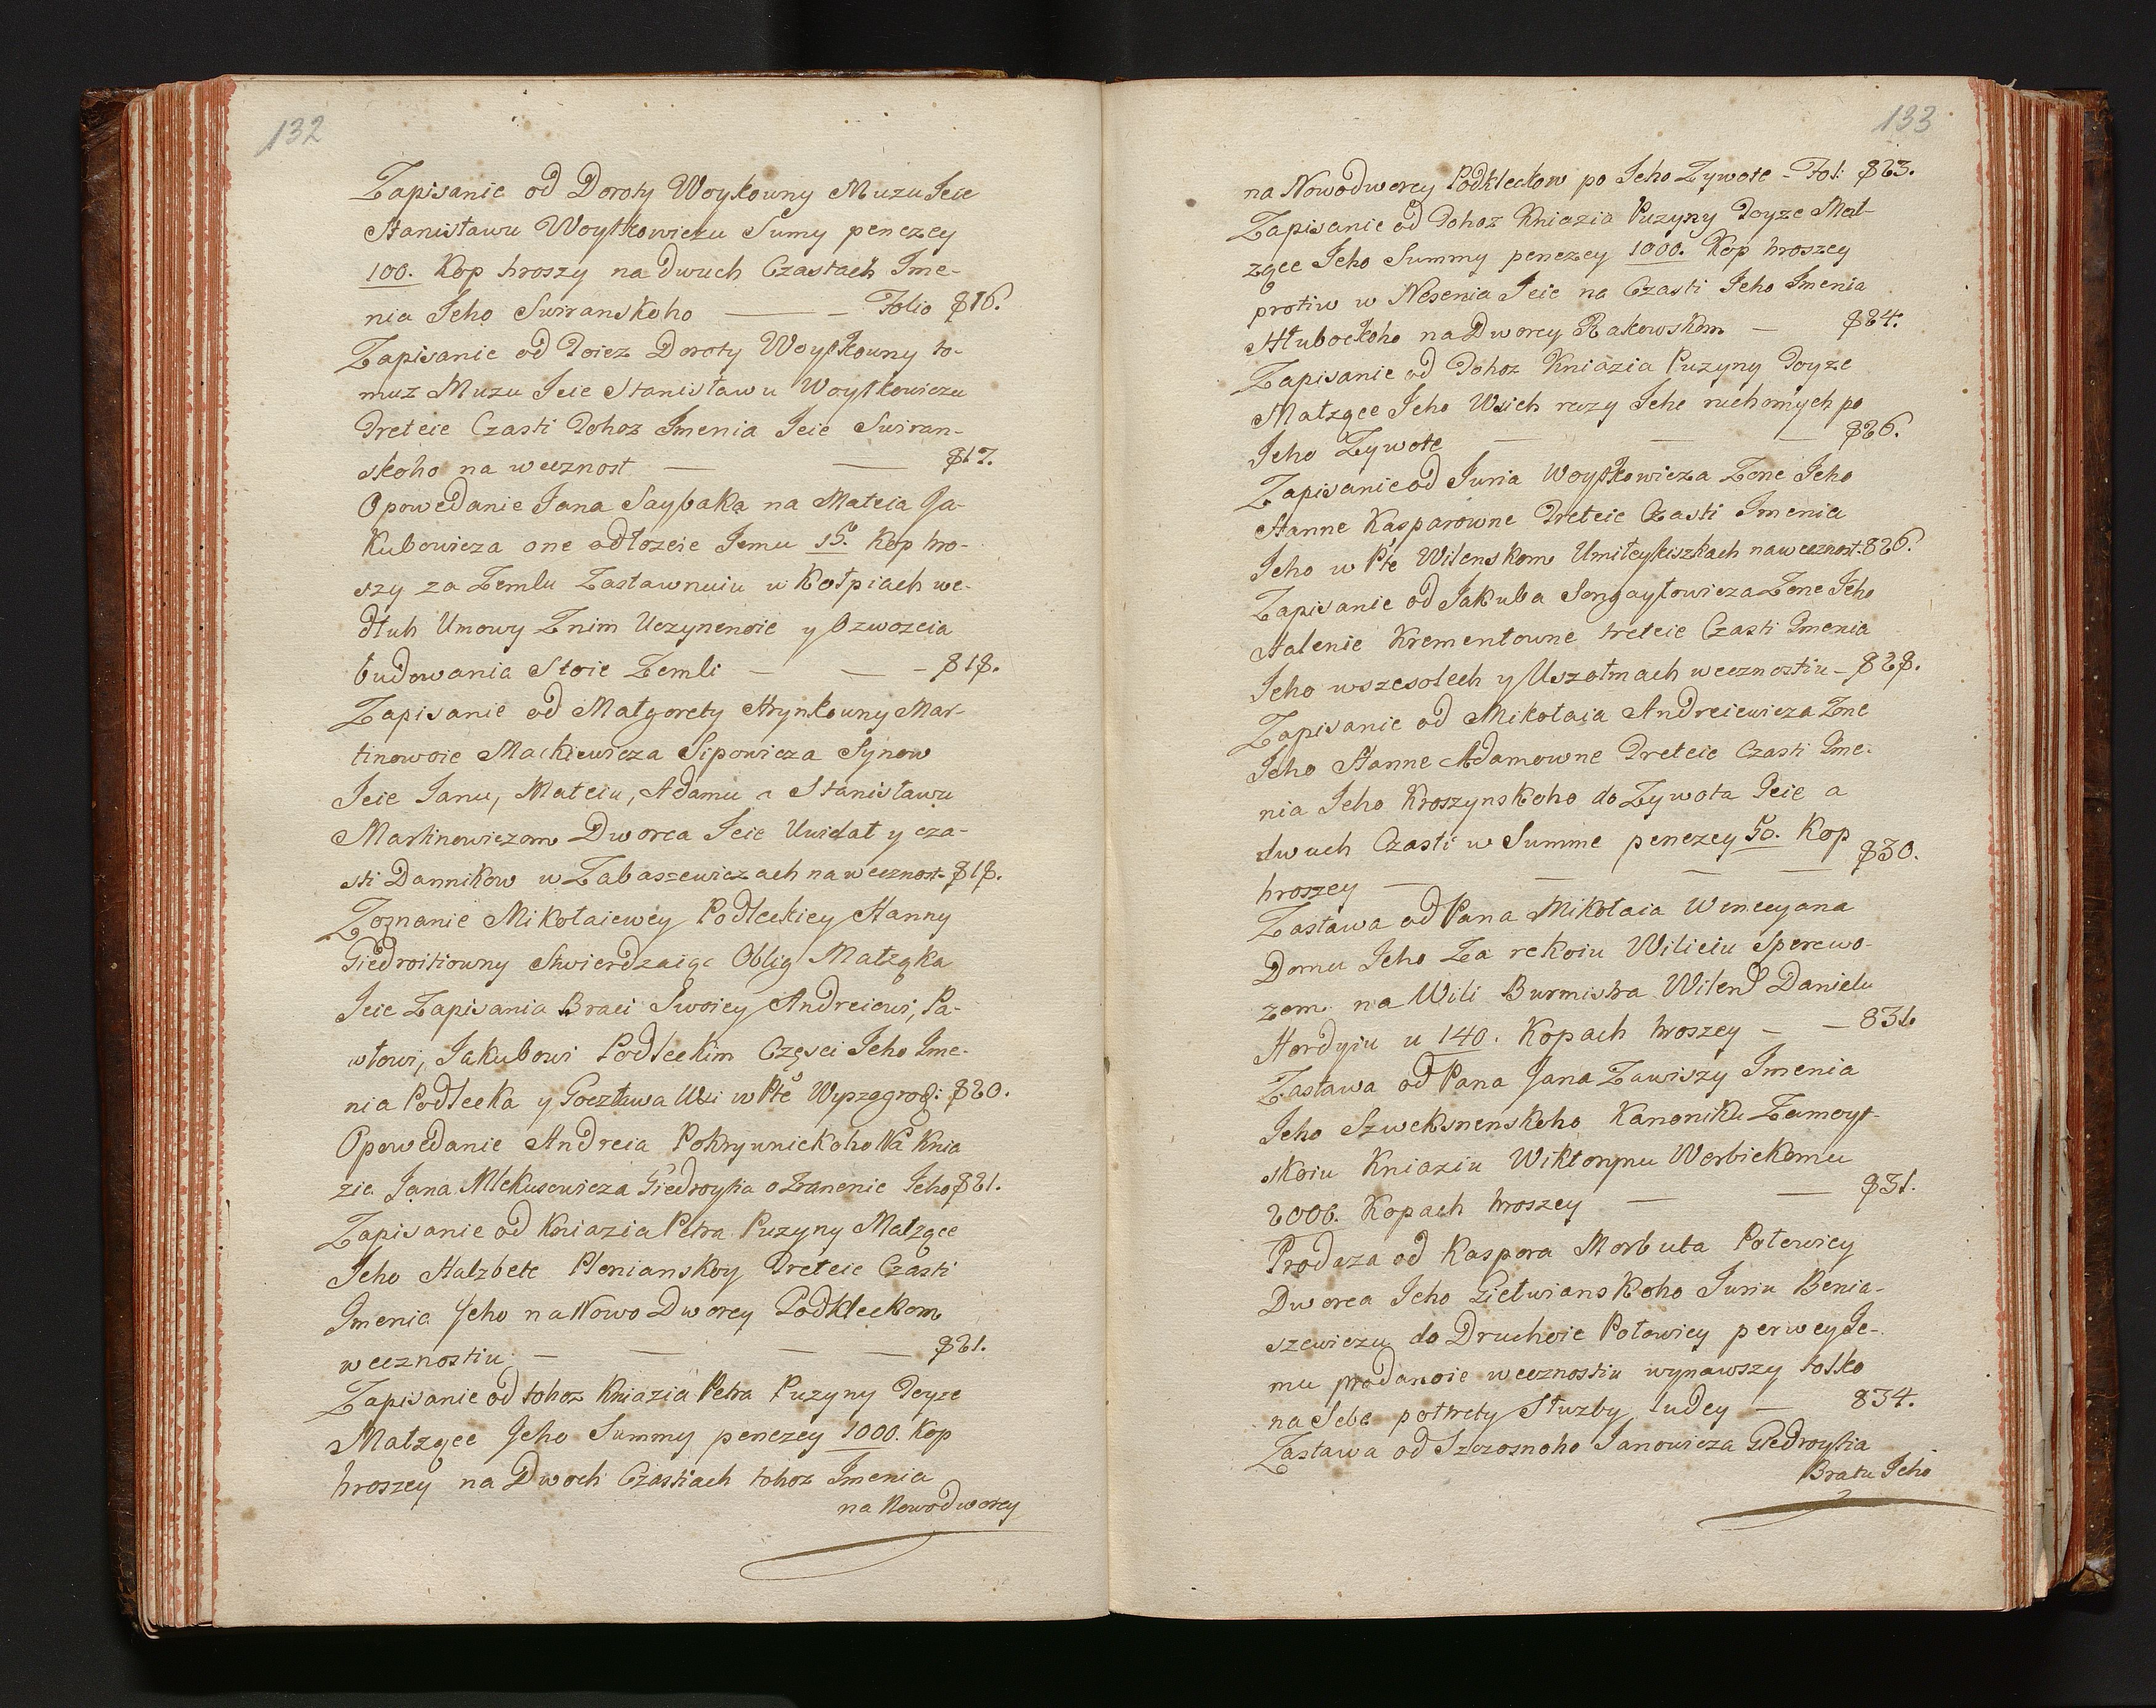 132
Zapisanie od Doroty Woytkowny Muzu Jeie
Stanisławu Woytkowiczu Sumy penezey
100. Kop hroszy na dwuch Czastach Ime-
nia Jeho Swiranskoho — Folio 816.
Zapisanie od Toiez Doroty Woytkowny to-
muz Muzu Jeie Stanisławu Woytkowiczu
Treteie Czasti Tohoz Imenia Jeie Swiran-
skoho na wecznost — — 817.
Opowedanie Jana Saybaka na Mateia Ja-
Kubowicza one odłozeie Jemu 15. Kop hro-
szy za Zemlu Zastawnuiu w Kołpiach we-
dłuh Umowy Znim Uczynenoie y Ozwozeia
budowania Stoie Zemli — — — 818.
Zapisanie od Małgorety Hrynkowny Mar-
tinowoie Mackiewicza Sipowicza Synow
Jeie Janu, Mateiu, Adamu a Stanisławu
Martinowiczom Dworca Jeie Uwidat y cza-
sti Dannikow w Zabaszewiczach na wecznost - 818.
Zoznanie Mikołaiewey Podleckiey Hanny
Giedroitiowny Stwierdzaiąc Oblig Małząka
Jeie Zapisania Braci Swoiey Andreiowi, Pa-
włowi, Jakubowi Podleckim Częsci Jeho Ime-
nia Podlecka y Goczława Wsi w Pte Wyszogrod: 820.
Opowedanie Andreia Pokrywnickoho Na Knia
zia Jana Mlekusewicza Giedroytia o Zranenie Jeho 821.
Zapisanie od Kniazia Petra Puzyny Małzące
Jeho Halzbete Plenianskoy Treteie Czasti
Imenia Jeho na Nowo Dworcy Podkleckom
wecznostiu — — — — 821.
Zapisanie od tohoz Kniazia Petra Puzyny Teyze
Małzące Jeho Summy penezey 1000. Kop
hroszey na Dwoch Czastiach tohoz Imenia
na Nowodworcy
133
na Nowodworcy Podkleckom po Jeho Zywote - Fol: 823.
Zapisanie od Tohoz Kniazia Puzyny Toyze Mał-
zące Jeho Summy penezey 1000. Kop hroszey
protiw w Nesenia Jeie na Czasti Jeho Imenia
Hłubockoho na Dworcy Rakowskom — 824.
Zapisanie od Tohoz Kniazia Puzyny Toyze
Małzące Jeho Wsich reczy Jeho ruchomych po
Jeho Zywote — — — 826.
Zapisanie od Juria Woytkowicza Zone Jeho
Hanne Kasparowne Treteie Czasti Imenia
Jeho w Pte Wilenskom Umileykiszkach na wecznost. 826.
Zapisanie od Jakuba Songayłowicza Zone Jeho
Halenie Krementowne treteie Czasti Imenia
Jeho wszesolech y Uszołmach wecznostiu - 828.
Zapisanie od Mikołaia Andreiewicza Zone
Jeho Hanne Adamowne Treteie Czasti Ime-
nia Jeho Kroszynskoho do Zywota Jeie a
dwuch Czasti w Summe penezey 50. Kop
hroszey — — — — 830.
Zastawa od Pana Mikołaia Wencecyana
Domu Jeho Za rekoiu Wilieiu Sperewo-
zom na Wili Burmistra Wilen̄ Danielu
Hordyiu u 140. Kopach hroszey — — 831.
Zastawa od Pana Jana Zawiszy Imenia
Jeho Szweksnenskoho Kanoniku Zamoyt-
skoiu Kniaziu Wiktorynu Werbickomu
2000. Kopach hroszey — — 831.
Prodaza od Kaspora Morbuta Połowicy
Dworca Jeho Gielwianskoho Juriu Benia-
szewiczu do Druchoie Połowicy perwey Je-
mu prodanoie wecznostiu wynawszy tolko
na Sebe potrety Słuzby ludey — 834.
Zastawa od Szczosnoho Janowicza Giedroytia
Bratu Jeho